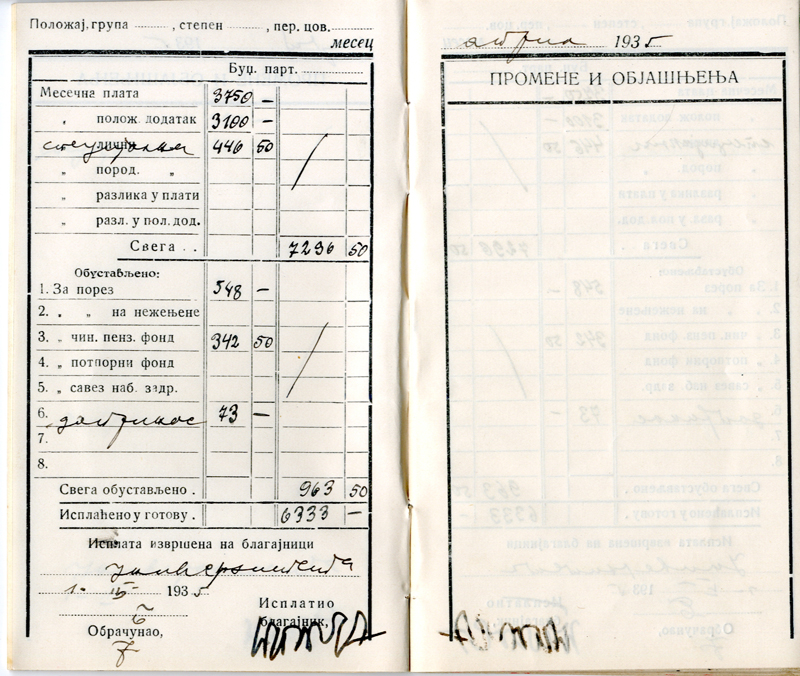 Положај, група ........, степен ........, пер. цов. ........
месец
Буџ. парт. ........
Месечна плата 3750 –
„ полож. додатак 3100 –
„ лични „ 446 50
„ пород. „
„ разлика у плати
„ разл. у пол. дод.
Свега . . 7296 50
Обустављено:
1. За порез 548 –
2. „ „ на нежењене
3. „ чин. пенз. фонд 342 50
4. „ потпорни фонд
5. „ савез наб. здр.
6. 73 –
7.
8.
Свега обустављено . 963 50
Исплаћено у готову . 6333 –
Исплата извршена на благајници
Универзитета
1. 193 5
Обрачунао,
Исплатио
благајник,
април 193 5
ПРОМЕНЕ И ОБЈАШЊЕЊА